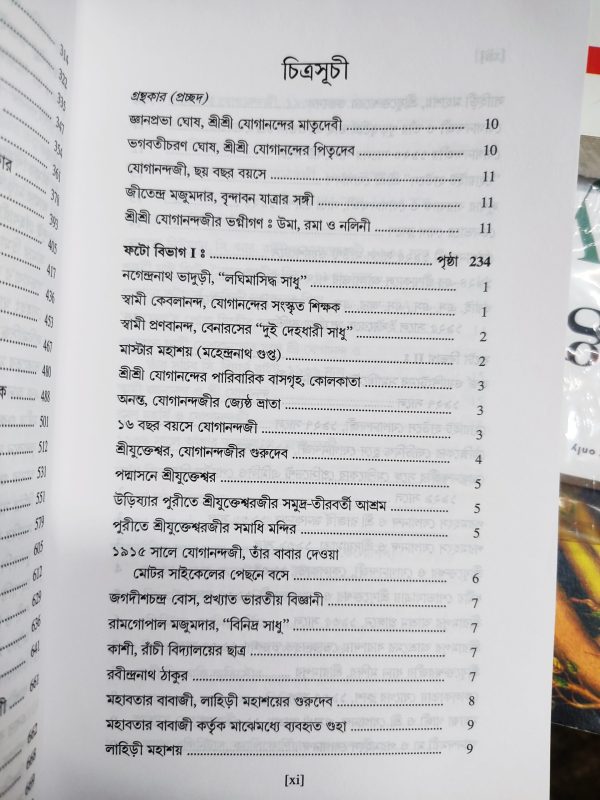 চিত্রসূচী
গ্রন্থকার (প্রচ্ছদ)
জ্ঞানপ্রভা ঘোষ, শ্রীশ্রী যোগানন্দের মাতৃদেবী ........ 10
ভগবতীচরণ ঘোষ, শ্রীশ্রী যোগানন্দের পিতৃদেব ........ 10
যোগানন্দজী, ছয় বছর বয়সে ........ 11
জীতেন্দ্র মজুমদার, বৃন্দাবন যাত্রার সঙ্গী ........ 11
শ্রীশ্রী যোগানন্দজীর ভগ্নীগণ : উমা, রমা ও নলিনী ........ 11
ফটো বিভাগ I : ........ পৃষ্ঠা 234
নগেন্দ্রনাথ ভাদুড়ী, “লঘিমাসিদ্ধ সাধু” ........ 1
স্বামী কেবলানন্দ, যোগানন্দের সংস্কৃত শিক্ষক ........ 1
স্বামী প্রণবানন্দ, বেনারসের “দুই দেহধারী সাধু” ........ 2
মাস্টার মহাশয় (মহেন্দ্রনাথ গুপ্ত) ........ 2
শ্রীশ্রী যোগানন্দের পারিবারিক বাসগৃহ, কোলকাতা ........ 3
অনন্ত, যোগানন্দজীর জ্যেষ্ঠ ভ্রাতা ........ 3
১৬ বছর বয়সে যোগানন্দজী ........ 3
শ্রীযুক্তেশ্বর, যোগানন্দজীর গুরুদেব ........ 4
পদ্মাসনে শ্রীযুক্তেশ্বর ........ 5
উড়িষ্যার পুরীতে শ্রীযুক্তেশ্বরজীর সমুদ্র-তীরবর্তী আশ্রম ........ 5
পুরীতে শ্রীযুক্তেশ্বরজীর সমাধি মন্দির ........ 5
১৯১৫ সালে যোগানন্দজী, তাঁর বাবার দেওয়া
মোটর সাইকেলের পেছনে বসে ........ 6
জগদীশচন্দ্র বোস, প্রখ্যাত ভারতীয় বিজ্ঞানী ........ 7
রামগোপাল মজুমদার, “বিনিদ্র সাধু” ........ 7
কাশী, রাঁচী বিদ্যালয়ের ছাত্র ........ 7
রবীন্দ্রনাথ ঠাকুর ........ 7
মহাবতার বাবাজী, লাহিড়ী মহাশয়ের গুরুদেব ........ 8
মহাবতার বাবাজী কর্তৃক মাঝেমধ্যে ব্যবহৃত গুহা ........ 9
লাহিড়ী মহাশয় ........ 9
[xi]
314
347
354
361
378
393
405
417
436
453
467
480
488
501
512
531
551
579
605
612
629
636
641
661
662
668
only